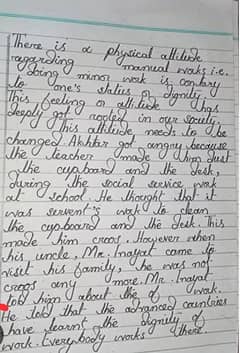 There is a physical attitude
regarding manual works i.e.
doing minor work is contrary
to one's status or dignity.
This feeling or attitude has
deeply got rooted in our society.
This attitude needs to be
changed. Akhtar got angry because
the teacher made him dust
the cupboard and the desk,
during the social service work
at school. He thought that it
was servent's work to clean
the cupboard and the desk. This
made him cross. However when
his uncle, Mr. Inayat came to
visit his family, he was not
cross any more. Mr. Inayat
told him about the of work.
He told that the advanced countries
have learnt the dignity of
work. Everybody works there.